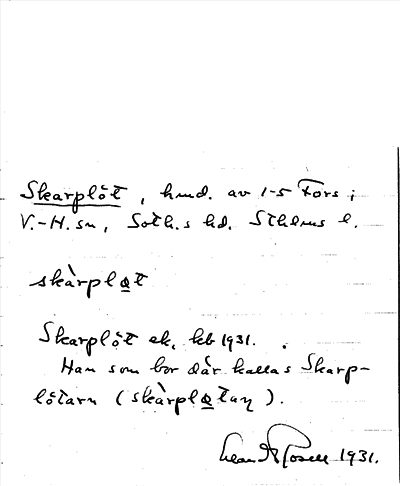 Skarplöt, hmd. av 1-5 Fors i
V.-H. sn, Soth.s hd. Sthlms l.
skàrpløt
Skarplöt ek, kb 1931.
Han som bor där kallas Skarp-
lötarn (skàrpløtaɳ).
1931.